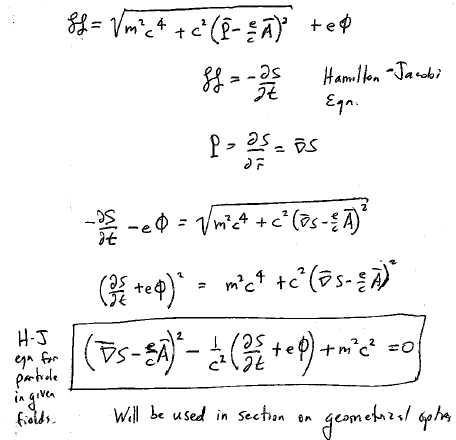 ℋ = √(m²c⁴ + c²(P̄ - e/c Ā)²) + eΦ
ℋ = -∂S/∂t Hamilton-Jacobi Eqn.
P = ∂S/∂r̄ = ∇̄S
-∂S/∂t - eΦ = √(m²c⁴ + c²(∇̄S - e/c Ā)²)
(∂S/∂t + eΦ)² = m²c⁴ + c²(∇̄S - e/c Ā)²
H-J
eqn for
particle
in given
fields.
(∇̄S - e/c Ā)² - 1/c² (∂S/∂t + eΦ)² + m²c² = 0
Will be used in section on geometrical optics